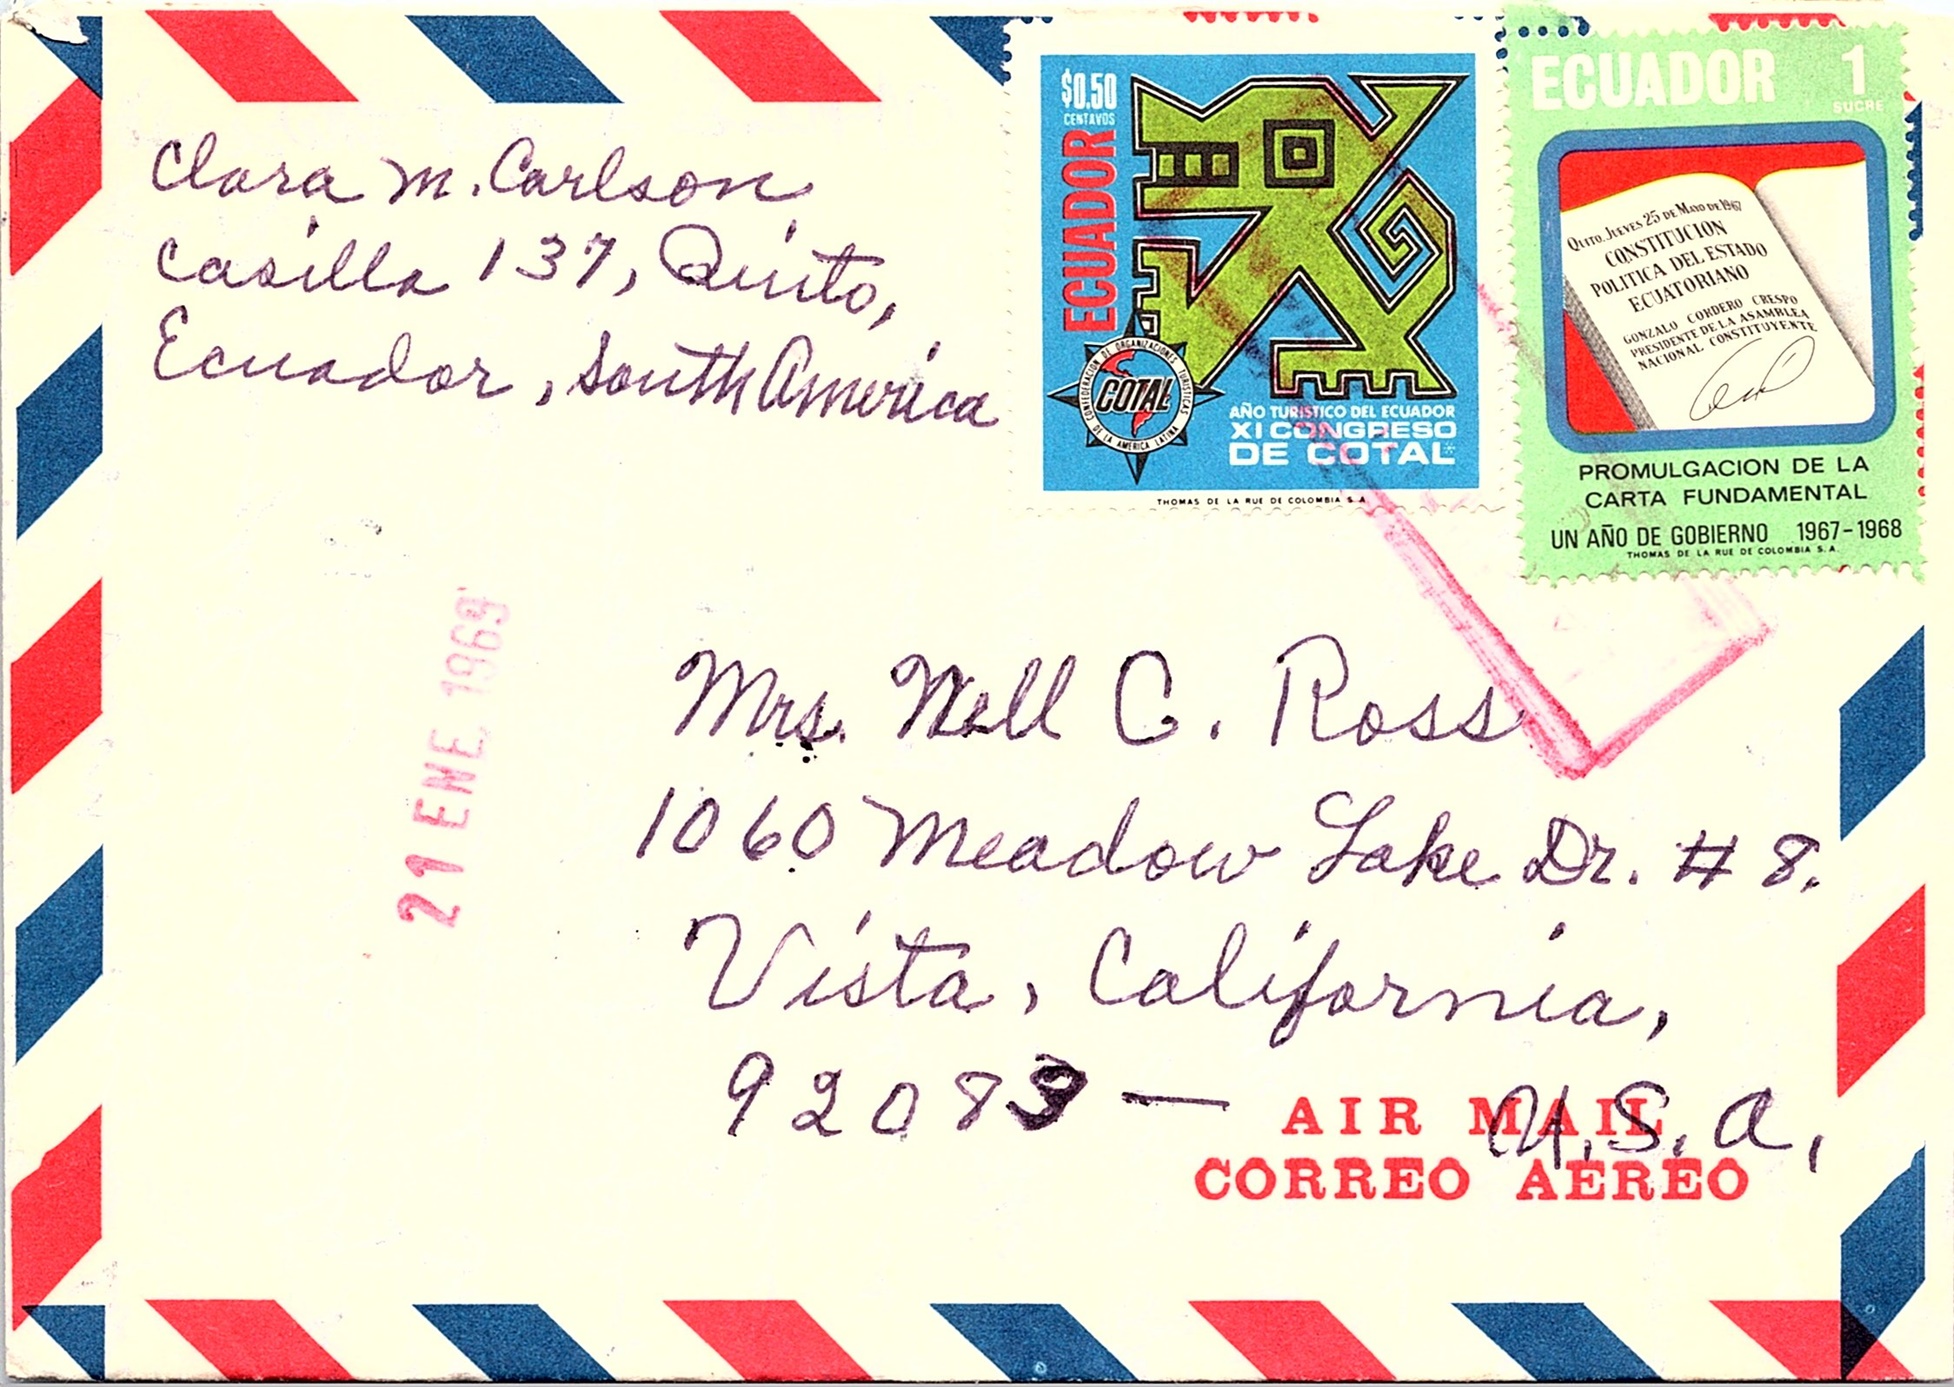 Clara M. Carlson
Casilla 137, Quito,
Ecuador, South America
$0.50
CENTAVOS
ECUADOR
CONFEDERACION DE ORGANIZACIONES TURISTICAS DE LA AMERICA LATINA
COTAL
AÑO TURISTICO DEL ECUADOR
XI CONGRESO
DE COTAL
THOMAS DE LA RUE DE COLOMBIA S.A.
ECUADOR 1
SUCRE
QUITO, JUEVES 25 DE MAYO DE 1967
CONSTITUCION
POLITICA DEL ESTADO
ECUATORIANO
GONZALO CORDERO CRESPO
PRESIDENTE DE LA ASAMBLEA
NACIONAL CONSTITUYENTE
PROMULGACION DE LA
CARTA FUNDAMENTAL
UN AÑO DE GOBIERNO 1967-1968
THOMAS DE LA RUE DE COLOMBIA S.A.
21 ENE 1969
Mrs. Nell C. Ross
1060 Meadow Lake Dr. # 8.
Vista, California,
92083 — U.S.A.,
AIR MAIL
CORREO AEREO